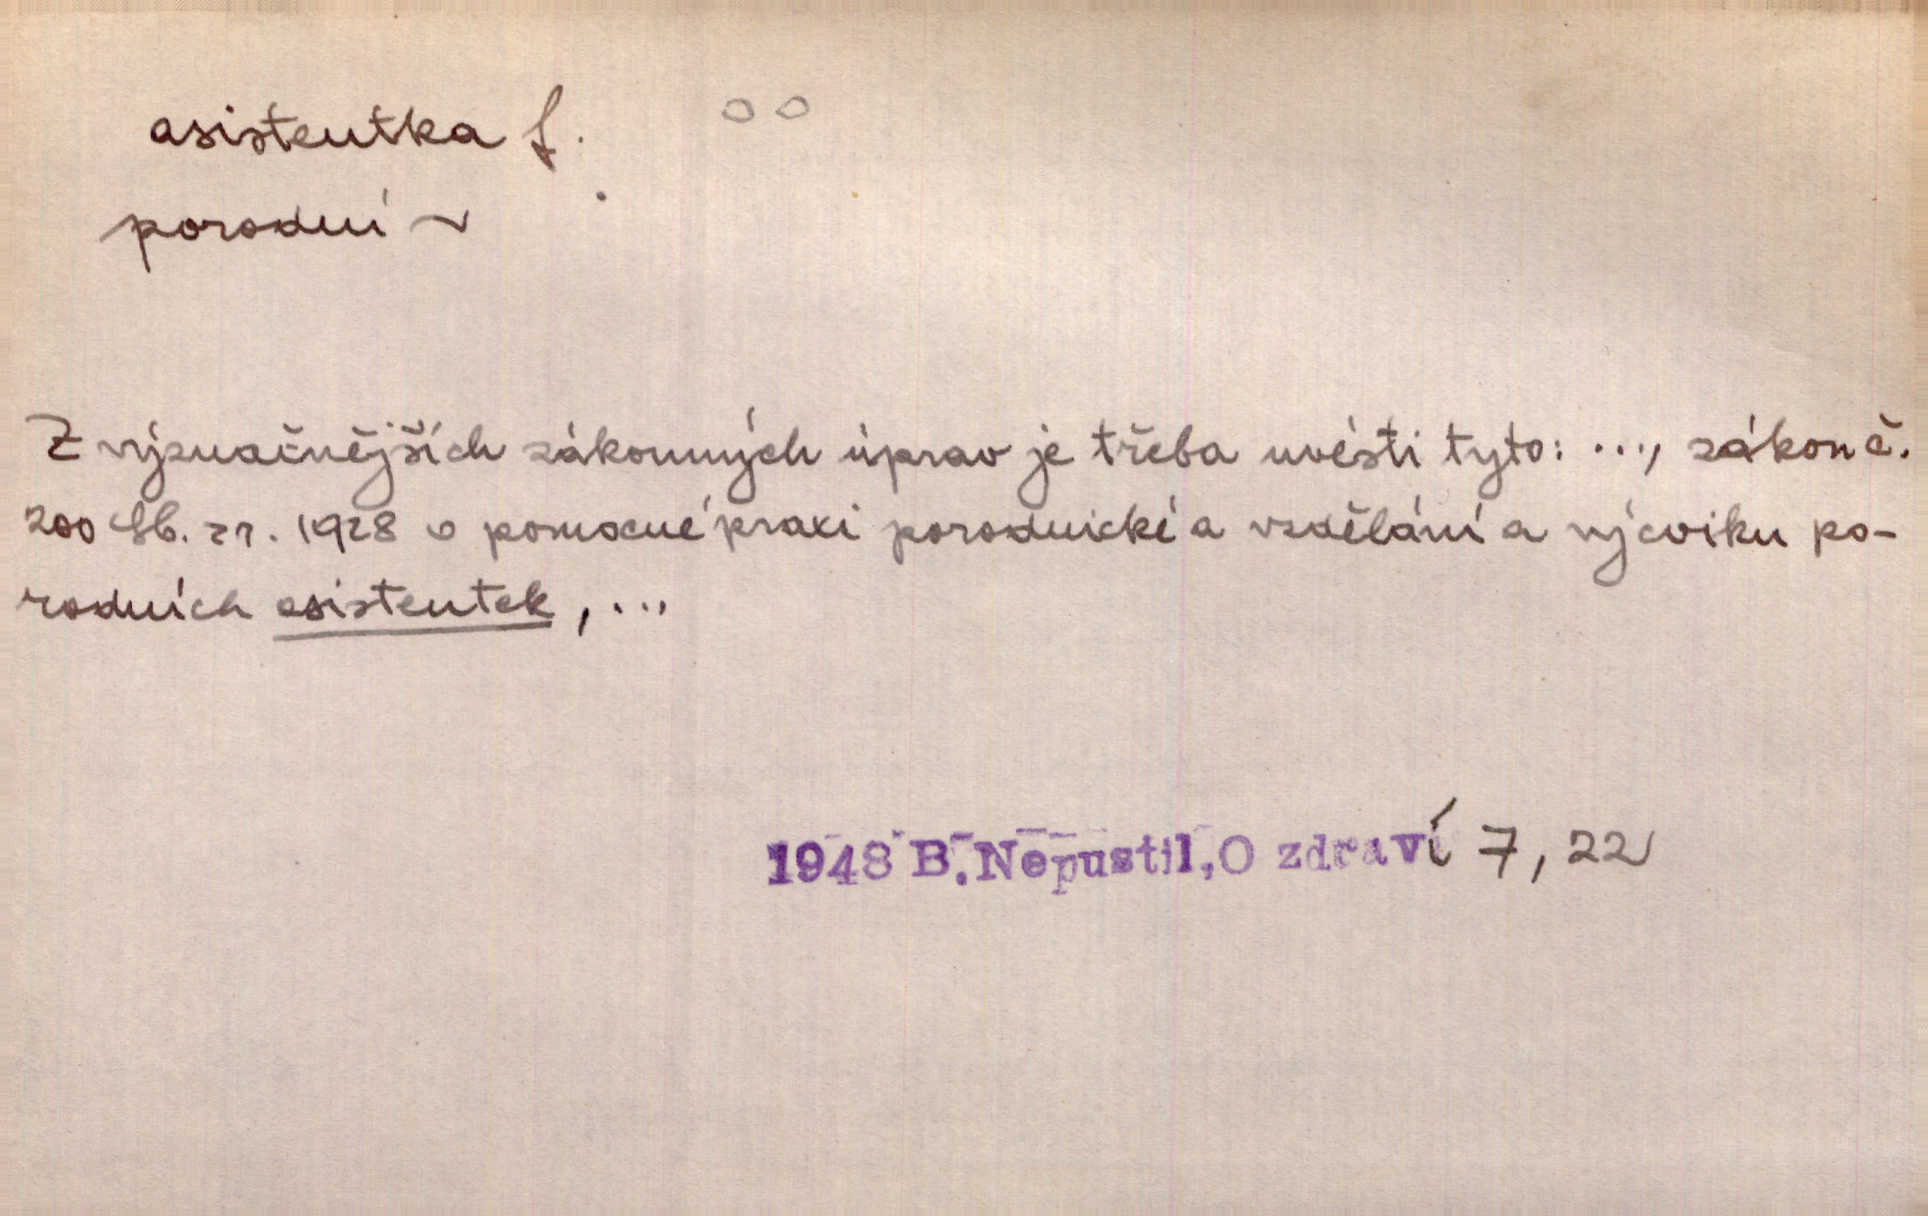 asistentka f.
porodní ~
Z význačnějších zákonných úprav je třeba uvésti tyto: ..., zákon č.
200 Sb. z r. 1928 o pomocné praxi porodnické a vzdělání a výcviku po-
rodních asistentek, ...
1948 B. Nepustil, O zdraví 7, 22